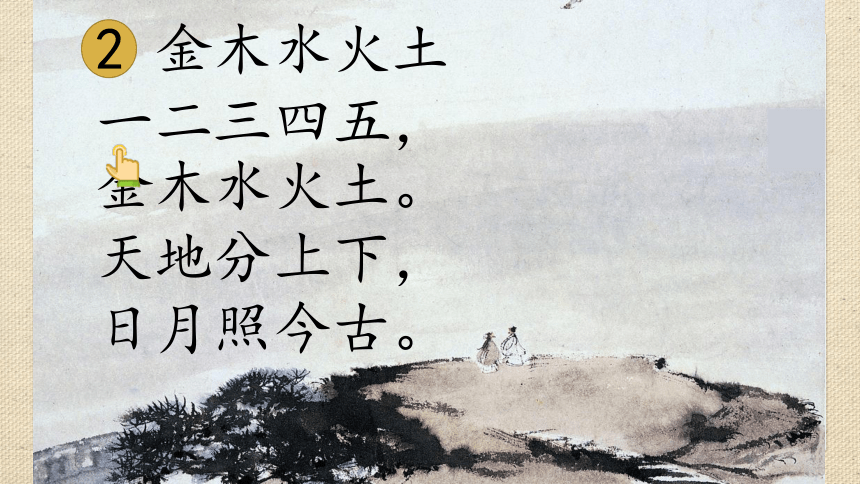 2 金木水火土
一二三四五，
金木水火土。
天地分上下，
日月照今古。